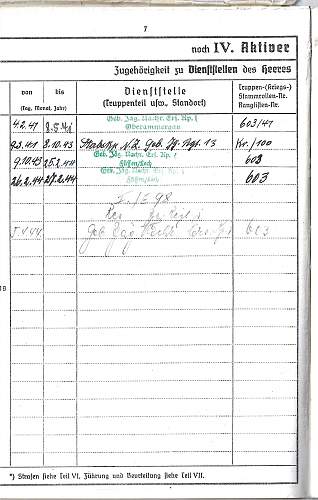 7
noch IV. Aktiver
Zugehörigkeit zu Dienststellen des Heeres
von bis
(Tag, Monat, Jahr)
Dienststelle
(Truppenteil usw., Standort)
Truppen-(Kriegs-)
Stammrollen-Nr.
Ranglisten-Nr.
Geb. Jäg. Nachr. Ers. Kp. 1
Oberammergau
4.2.41 8.5.41 603/41
9.5.41 8.10.43 Stabskp. N.Z. Geb. Jg. Rgt. 13 Kr./100
Geb. Jäg. Nachr. Ers. Kp.
Füssen/Lech
9.10.43 25.2.44 603
Geb. Jäg. Nachr. Ers. Kp. 1
Füssen/Lech
26.2.44 27.2.44 603
98
44 Geb. Jäg. 603
18
*) Strafen siehe Teil VI, Führung und Beurteilung siehe Teil VII.